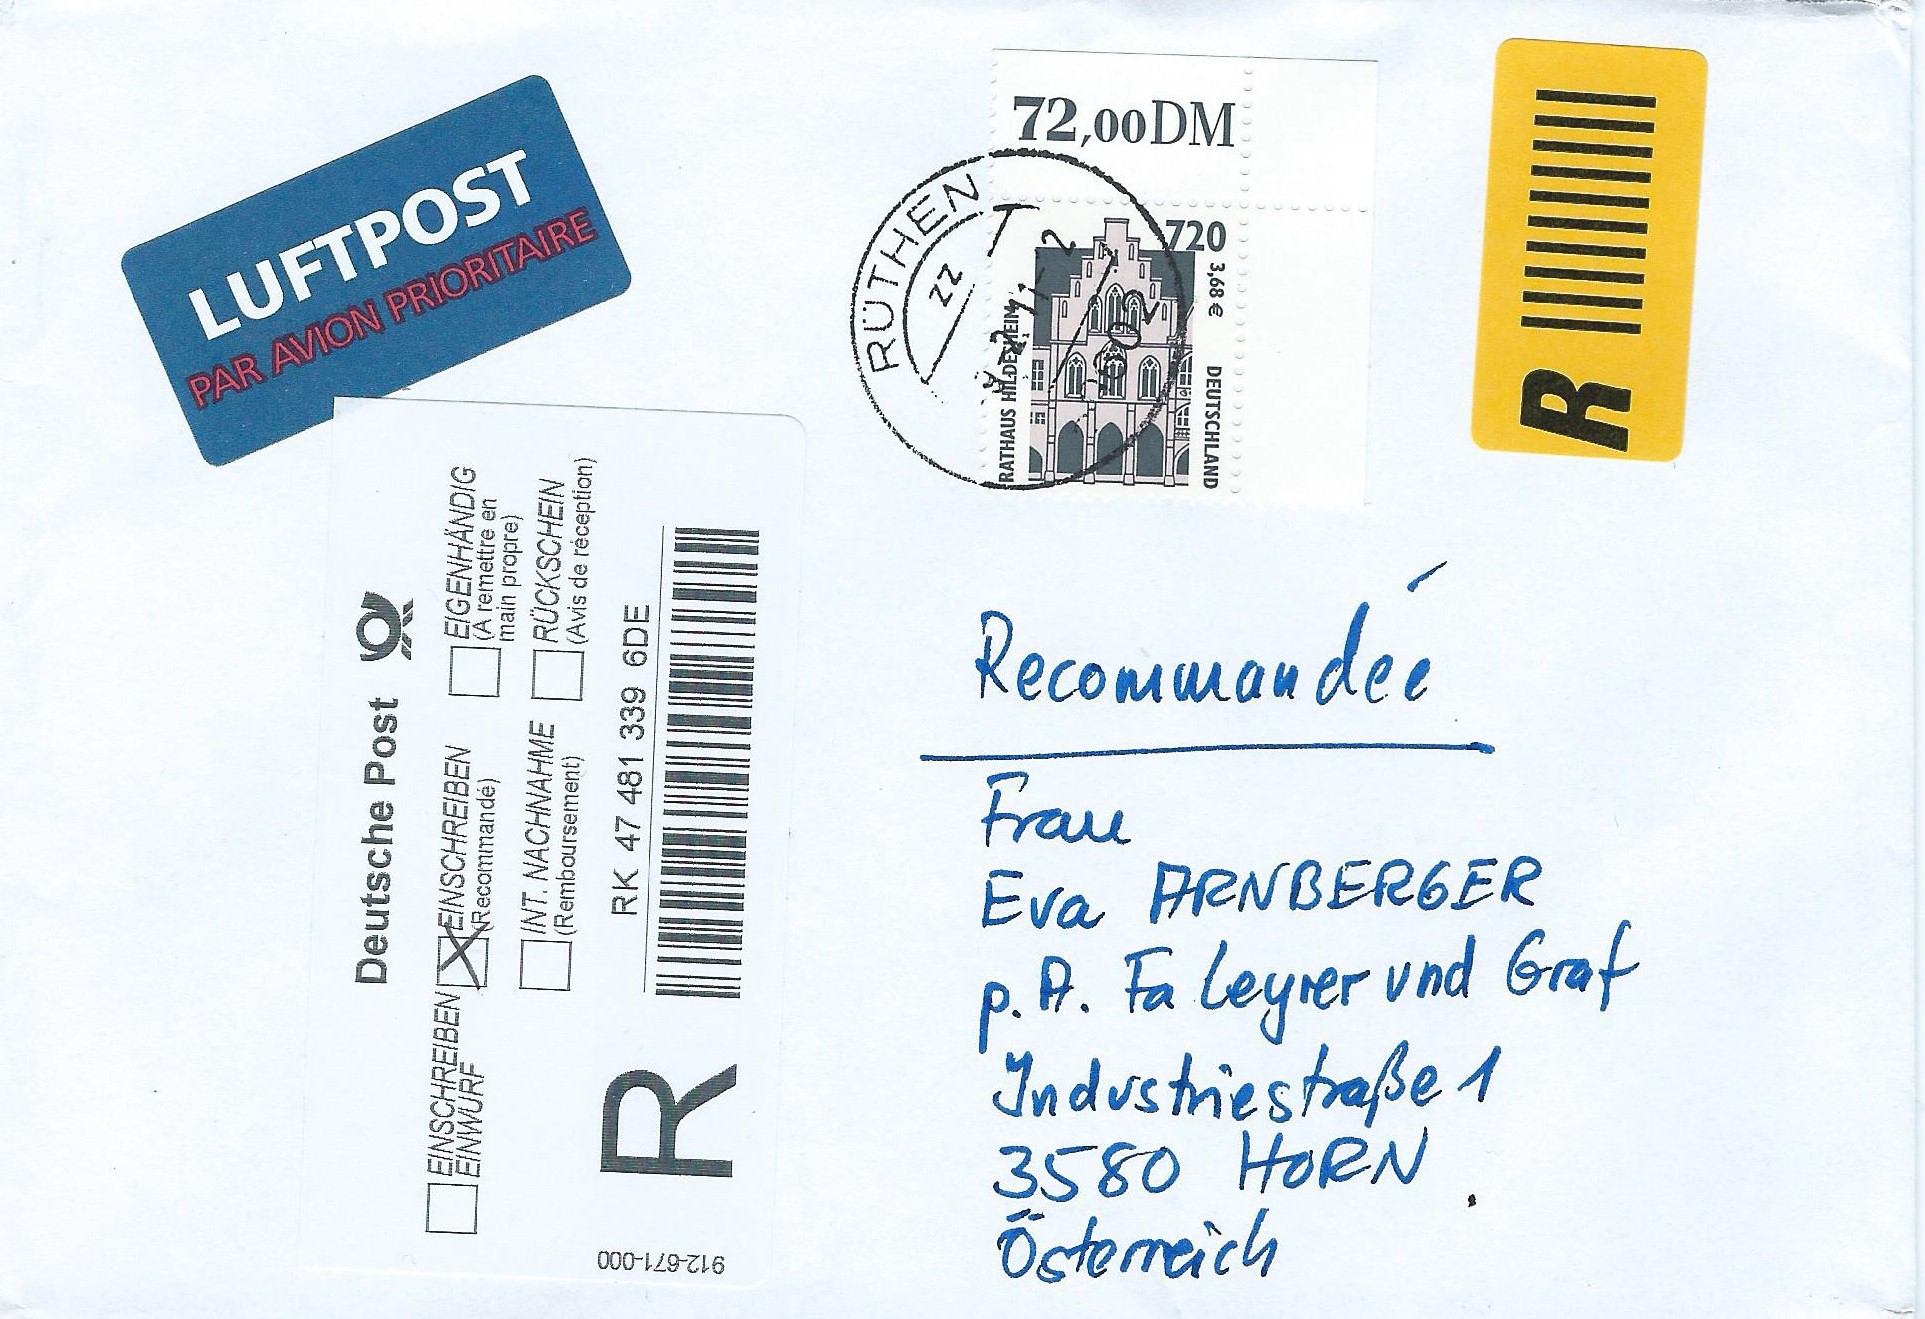 LUFTPOST
PAR AVION PRIORITAIRE
72,00DM
720
3,68 €
RATHAUS HILDESHEIM
DEUTSCHLAND
RÜTHEN
ZZ
R
Deutsche Post
EINSCHREIBEN
EINWURF
EINSCHREIBEN
(Recommandé)
EIGENHÄNDIG
(A remettre en
main propre)
INT. NACHNAHME
(Remboursement)
RÜCKSCHEIN
(Avis de réception)
RK 47 481 339 6DE
R
912-671-000
Recommandée
Frau
Eva ARNBERGER
p. A. Fa Leyrer und Graf
Industriestraße 1
3580 HORN
Österreich